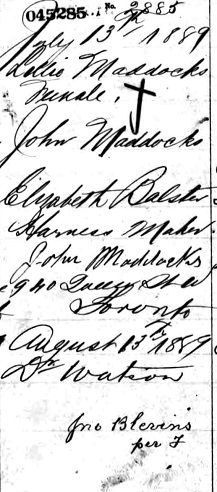 045285. No. 2885
July 13th 1889
Lillie Maddocks
Female.
John Maddocks
Elizabeth Balster
Harness Maker.
John Maddocks
940 Queen St W
Toronto
August 13th 1889
Dr Watson
Jno Blevins
per F